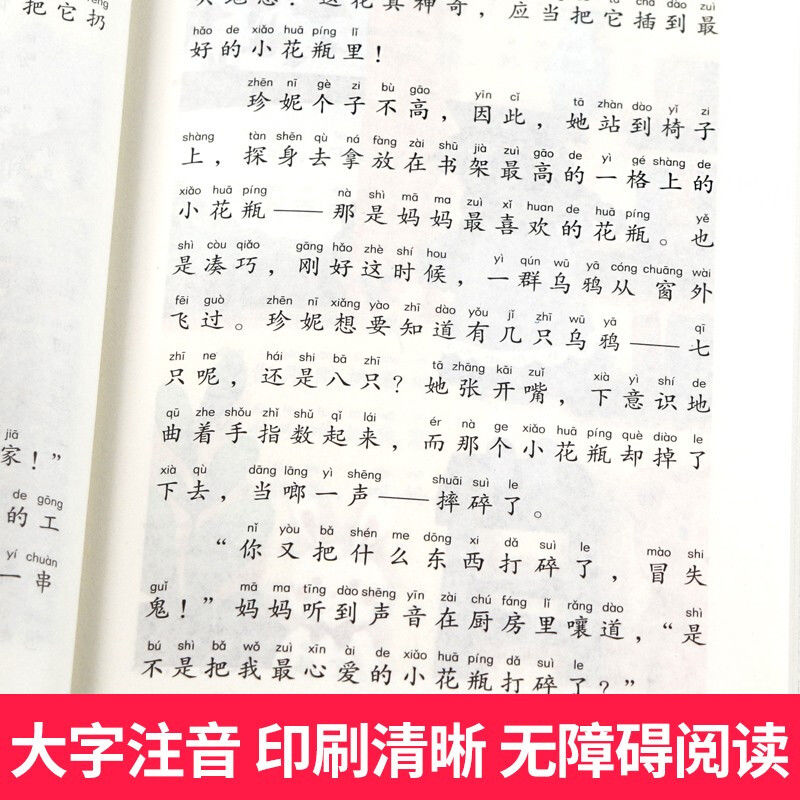 把它扔
jiā
家！”
de gōng
的工
yí chuàn
一串
花真神奇，应当把它插到最
hǎo de xiǎo huā píng lǐ
好的小花瓶里！
zhēn nī gè zi bù gāo yīn cǐ tā zhàn dào yǐ zi
珍妮个子不高，因此，她站到椅子
shàng tàn shēn qù ná fàng zài shū jià zuì gāo de yì gé shàng de
上，探身去拿放在书架最高的一格上的
xiǎo huā píng nà shì mā ma zuì xǐ huan de huā píng yě
小花瓶——那是妈妈最喜欢的花瓶。也
shì còu qiǎo gāng hǎo zhè shí hou yì qún wū yā cóng chuāng wài
是凑巧，刚好这时候，一群乌鸦从窗外
fēi guò zhēn nī xiǎng yào zhī dào yǒu jǐ zhī wū yā qī
飞过。珍妮想要知道有几只乌鸦——七
zhī ne hái shi bā zhī tā zhāng kāi zuǐ xià yì shí de
只呢，还是八只？她张开嘴，下意识地
qū zhe shǒu zhǐ shǔ qǐ lái ér nà ge xiǎo huā píng què diào le
曲着手指数起来，而那个小花瓶却掉了
xià qù dāng lāng yì shēng shuāi suì le
下去，当啷一声——摔碎了。
nǐ yòu bǎ shén me dōng xi dǎ suì le mào shi
“你又把什么东西打碎了，冒失
guǐ mā ma tīng dào shēng yīn zài chú fáng lǐ rǎng dào shì
鬼！”妈妈听到声音在厨房里嚷道，“是
bú shì bǎ wǒ zuì xīn ài de xiǎo huā píng dǎ suì le
不是把我最心爱的小花瓶打碎了？”
大字注音 印刷清晰 无障碍阅读